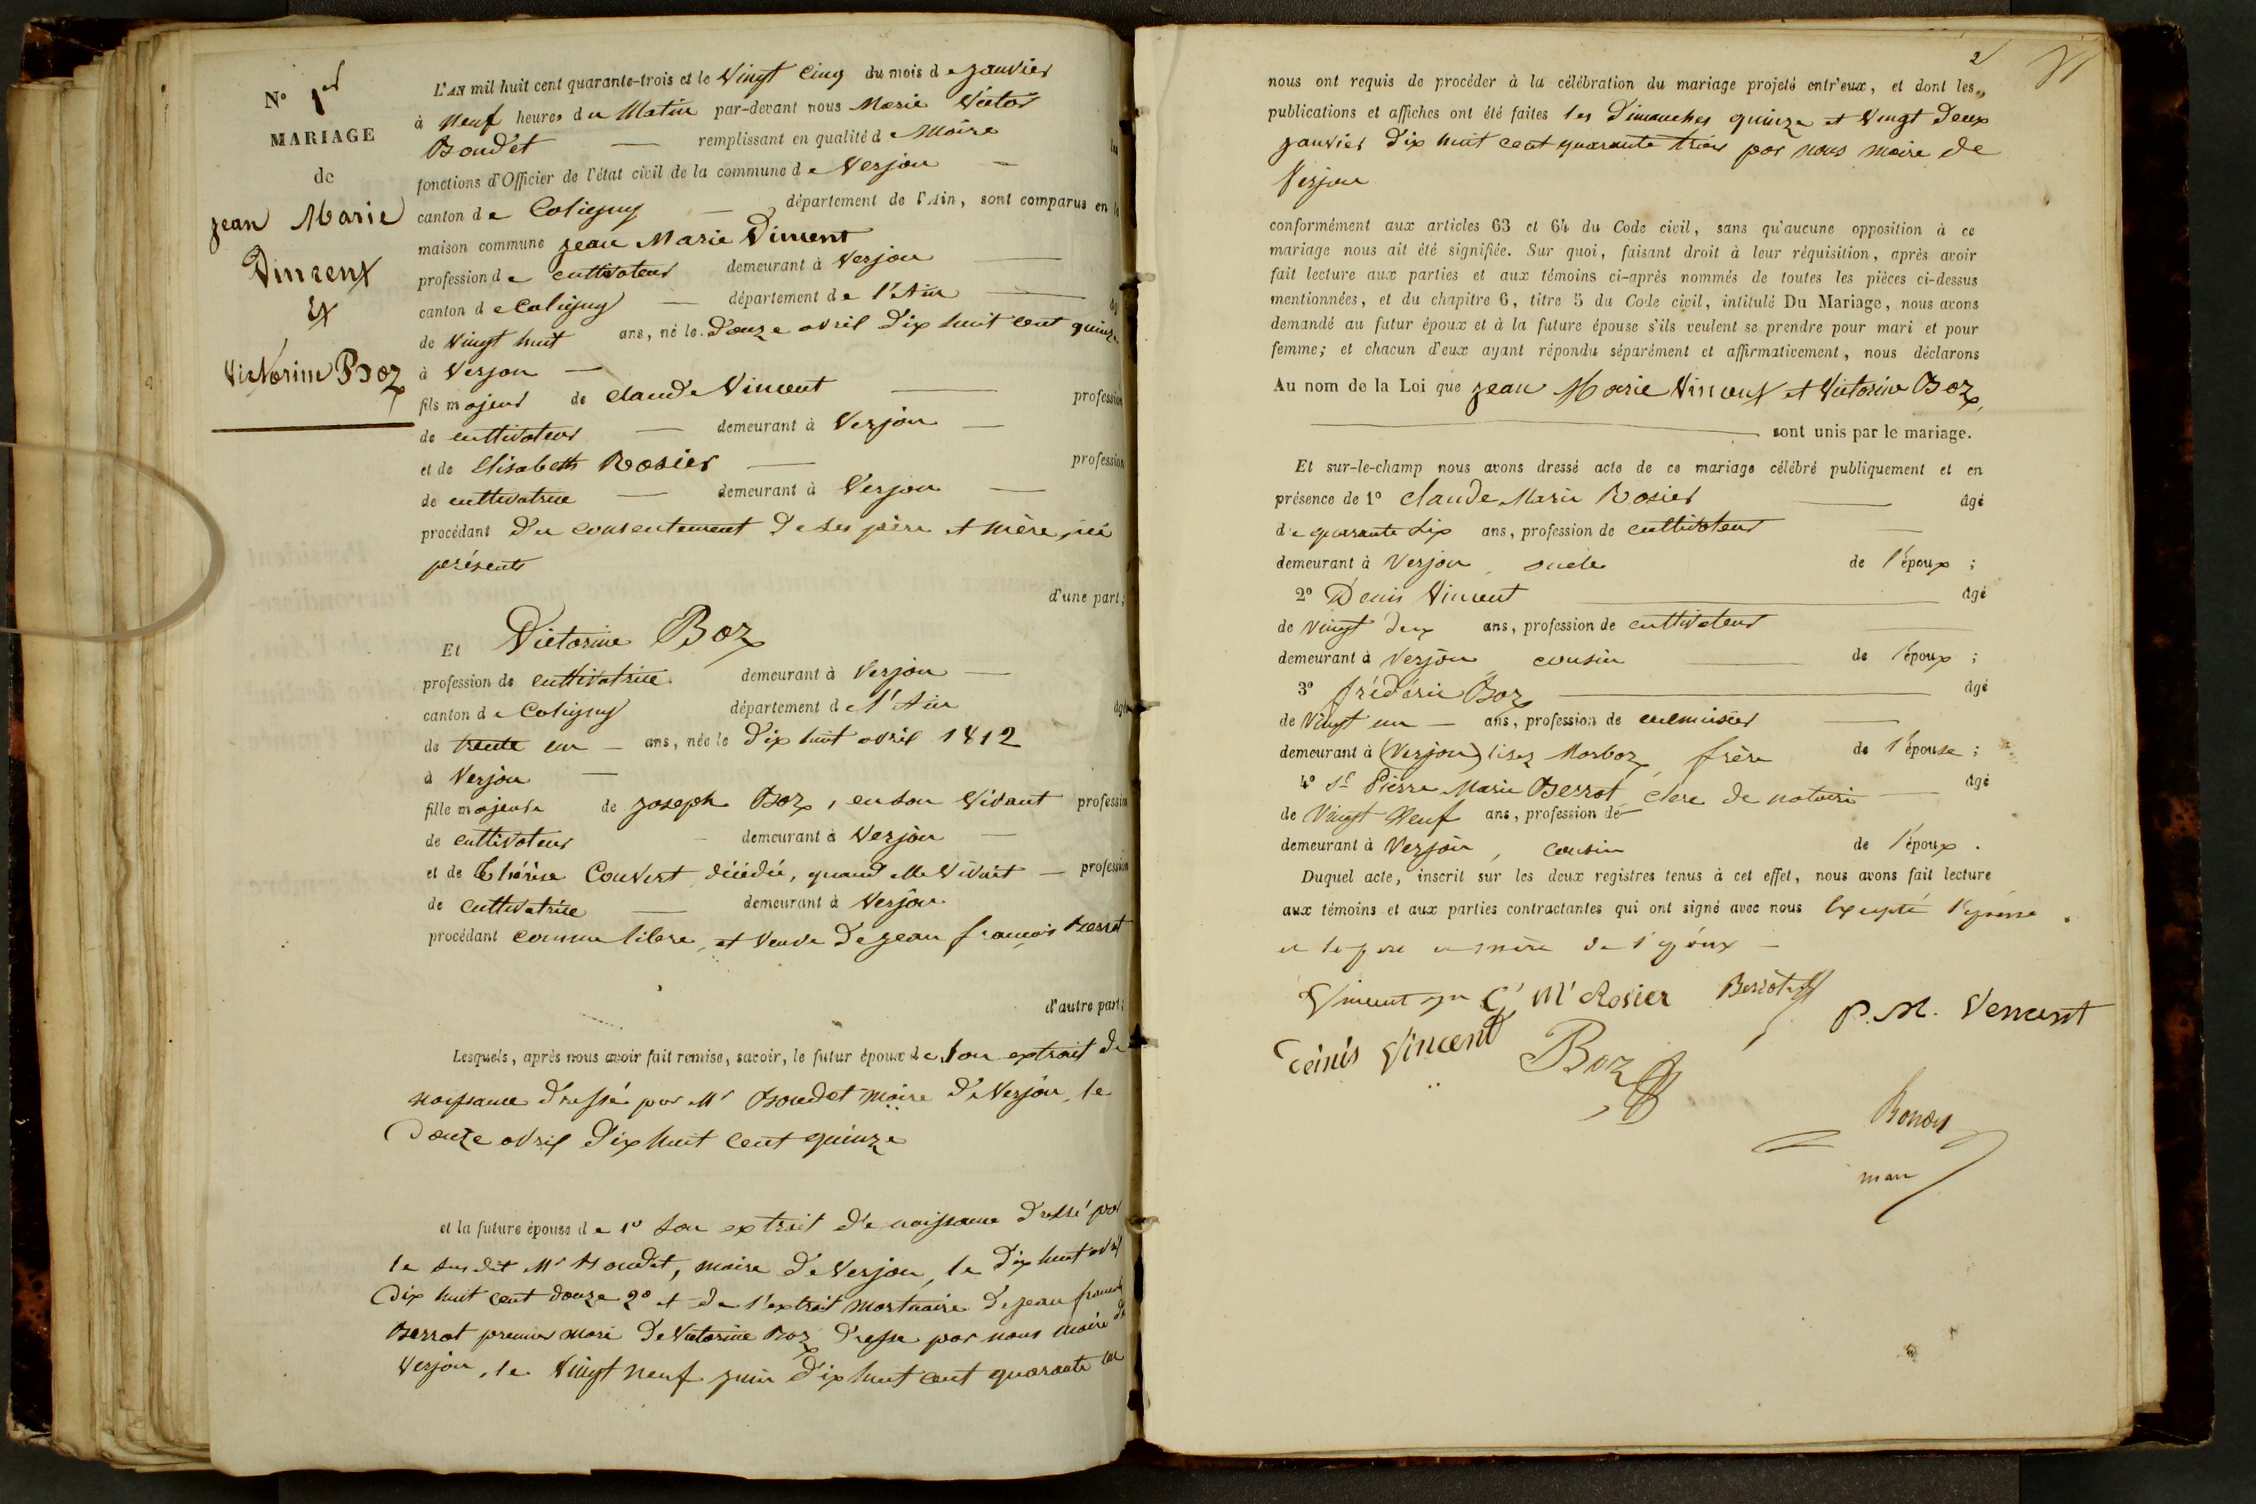 N° 1er
MARIAGE
de
Jean Marie
Vincent
Et
Victorine Boz
L'AN mil huit cent quarante-trois et le Vingt Cinq du mois de janvier
à Neuf heures du Matin par-devant nous Marie Victor
Boudet — remplissant en qualité de Maire les
fonctions d'Officier de l'état civil de la commune de Verjon —
canton de Coligny — département de l'Ain, sont comparus en la
maison commune Jean Marie Vincent
profession de cultivateur demeurant à Verjon —
canton de Coligny — département de l'Ain — âgé
de Vingt huit ans, né le douze avril dix huit cent quinze
à Verjon —
fils majeur de Claude Vincent — profession
de cultivateur — demeurant à Verjon —
et de Elisabeth Rosier — profession
de cultivatrice — demeurant à Verjon —
procédant du consentement de ses père et mère, ici
présents
d'une part;
Et Victorine Boz
profession de cultivatrice demeurant à Verjon —
canton de Coligny département de l'Ain âgée
de trente un — ans, née le dix huit avril 1812
à Verjon —
fille majeure de Joseph Boz, en son Vivant profession
de cultivateur — demeurant à Verjon —
et de Thérèse Convert, décédée, quand elle Vivait — profession
de cultivatrice — demeurant à Verjon
procédant comme libre, et Veuve de Jean françois Berrot
d'autre part;
Lesquels, après nous avoir fait remise, savoir, le futur époux de son extrait de
naissance dressé par Mr Boudet maire de Verjon, le
douze avril dix huit cent quinze
et la future épouse de 1° son extrait de naissance dressé par
le susdit Mr Boudet, maire de Verjon, le dix huit avril
dix huit cent douze 2° et de l'extrait mortuaire de Jean françois
Berrot premier mari de Victorine Boz dressé par nous maire de
Verjon, le Vingt neuf juin dix huit cent quarante un
2
nous ont requis de procéder à la célébration du mariage projeté entr'eux, et dont les
publications et affiches ont été faites les Dimanches quinze et Vingt deux
janvier dix huit cent quarante trois par nous maire de
Verjon
conformément aux articles 63 et 64 du Code civil, sans qu'aucune opposition à ce
mariage nous ait été signifiée. Sur quoi, faisant droit à leur réquisition, après avoir
fait lecture aux parties et aux témoins ci-après nommés de toutes les pièces ci-dessus
mentionnées, et du chapitre 6, titre 5 du Code civil, intitulé Du Mariage, nous avons
demandé au futur époux et à la future épouse s'ils veulent se prendre pour mari et pour
femme; et chacun d'eux ayant répondu séparément et affirmativement, nous déclarons
Au nom de la Loi que Jean Marie Vincent et Victorine Boz,
sont unis par le mariage.
Et sur-le-champ nous avons dressé acte de ce mariage célébré publiquement et en
présence de 1° Claude Marie Rosier — âgé
de quarante dix ans, profession de cultivateur —
demeurant à Verjon, oncle de l'époux ;
2° Denis Vincent — âgé
de vingt deux ans, profession de cultivateur —
demeurant à Verjon, cousin — de l'époux ;
3° frédéric Boz — âgé
de Vingt un — ans, profession de —
demeurant à (Verjon) lisez Marboz, frère de l'épouse ;
4° Sr Pierre Marie Berrot clerc de notaire — âgé
de Vingt Neuf ans, profession de
demeurant à Verjon, cousin de l'époux .
Duquel acte, inscrit sur les deux registres tenus à cet effet, nous avons fait lecture
aux témoins et aux parties contractantes qui ont signé avec nous Excepté l'épouse
et le père et mère de l'époux —
Vincent C M Rosier Berrot P. M. Vencent
Denis Vincent Boz
Boudet
maire